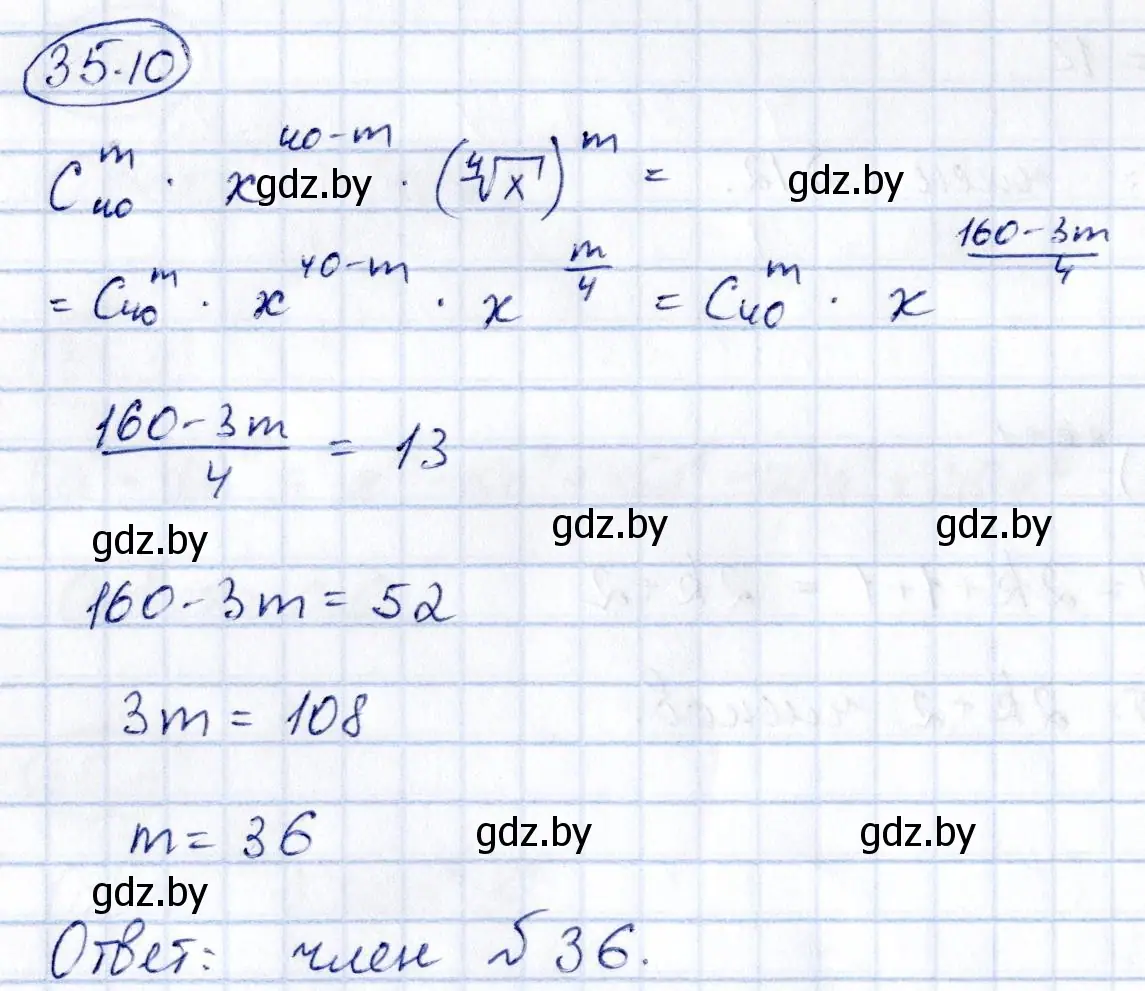 35.10
C₄₀ᵐ · x⁴⁰⁻ᵐ · (∜x)ᵐ =
gdz.by gdz.by
= C₄₀ᵐ · x⁴⁰⁻ᵐ · x^(m/4) = C₄₀ᵐ · x^((160-3m)/4)
(160-3m)/4 = 13
gdz.by gdz.by gdz.by
160-3m = 52
3m = 108
m = 36 gdz.by gdz.by
gdz.by
Ответ: член №36.